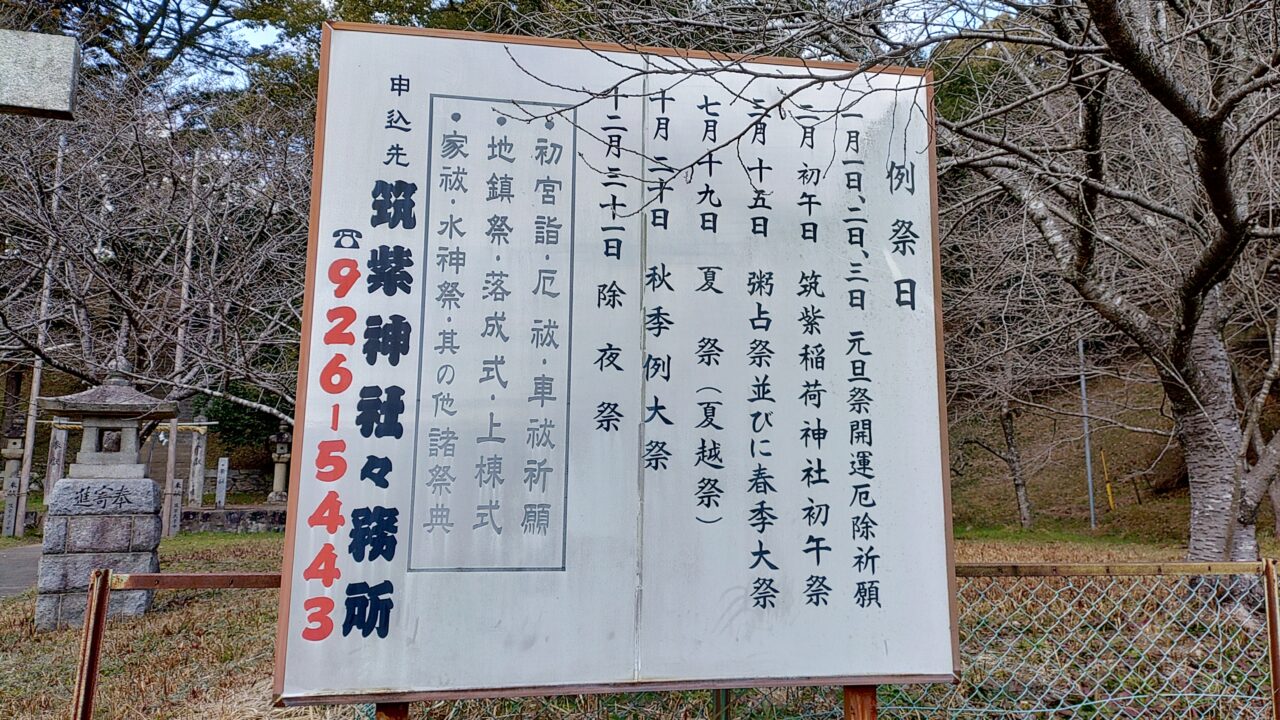 例祭日
一月一日、二日、三日 元旦祭開運厄除祈願
二月 初午日 筑紫稲荷神社初午祭
三月十五日 粥占祭並びに春季大祭
七月十九日 夏祭(夏越祭)
十月二十日 秋季例大祭
十二月三十一日 除夜祭
●初宮詣・厄祓・車祓祈願
●地鎮祭・落成式・上棟式
●家祓・水神祭・其の他諸祭典
申込先 筑紫神社々務所
☎926-5443
奉寄進